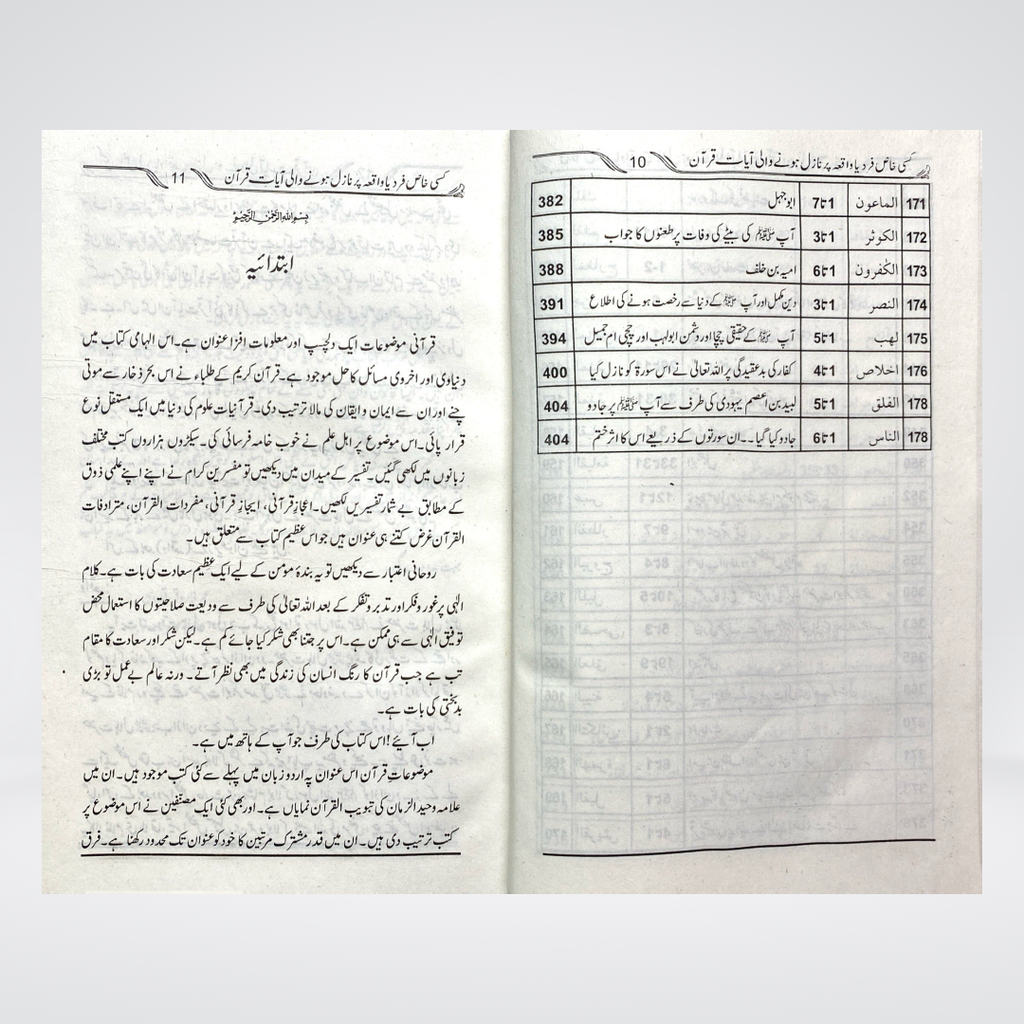 کسی خاص فرد یا واقعہ پر نازل ہونے والی آیات قرآن 10
171 الماعون 1تا7 ابوجہل 382
172 الکوثر 1تا3 آپ ﷺ کی بیٹے کی وفات پر طعنوں کا جواب 385
173 الکٰفرون 1تا6 امیہ بن خلف 388
174 النصر 1تا3 دین مکمل اور آپ ﷺ کے دنیا سے رخصت ہونے کی اطلاع 391
175 لھب 1تا5 آپ ﷺ کے حقیقی چچا اور دشمن ابولہب اور چچی ام جمیل 394
176 اخلاص 1تا4 کفار کی بدعقیدگی پر اللہ تعالیٰ نے اس سورۃ کو نازل کیا 400
178 الفلق 1تا5 لبید بن اعصم یہودی کی طرف سے آپ ﷺ پر جادو 404
178 الناس 1تا6 جادو کیا گیا۔۔ان سورتوں کے ذریعے اس کا اثر ختم 404
کسی خاص فرد یا واقعہ پر نازل ہونے والی آیات قرآن 11
بِسْمِ اللهِ الرَّحْمٰنِ الرَّحِيْمِ
ابتدائیہ
قرآنی موضوعات ایک دلچسپ اور معلومات افزا عنوان ہے۔اس الہامی کتاب میں
دنیاوی اور اخروی مسائل کا حل موجود ہے۔قرآن کریم کے طلباء نے اس بحر ذخار سے موتی
چنے اور ان سے ایمان و ایقان کی مالا ترتیب دی۔قرآنیات علوم کی دنیا میں ایک مستقل نوع
قرار پائی۔اس موضوع پر اہل علم نے خوب خامہ فرسائی کی۔سیکڑوں ہزاروں کتب مختلف
زبانوں میں لکھی گئیں۔تفسیر کے میدان میں دیکھیں تو مفسرین کرام نے اپنے اپنے علمی ذوق
کے مطابق بے شمار تفسیریں لکھیں۔اعجاز قرآنی، ایجاز قرآنی، مفردات القرآن، مترادفات
القرآن غرض کتنے ہی عنوان ہیں جو اس عظیم کتاب سے متعلق ہیں۔
روحانی اعتبار سے دیکھیں تو یہ بندۂ مومن کے لیے ایک عظیم سعادت کی بات ہے۔کلام
الٰہی پر غور و فکر اور تدبر و تفکر کے بعد اللہ تعالیٰ کی طرف سے ودیعت صلاحیتوں کا استعمال محض
توفیق الٰہی سے ہی ممکن ہے۔اس پر جتنا بھی شکر کیا جائے کم ہے۔لیکن شکر اور سعادت کا مقام
تب ہے جب قرآن کا رنگ انسان کی زندگی میں بھی نظر آئے۔ ورنہ عالم بے عمل تو بڑی
بدبختی کی بات ہے۔
اب آئیے! اس کتاب کی طرف جو آپ کے ہاتھ میں ہے۔
موضوعات قرآن اس عنوان پہ اردو زبان میں پہلے سے کئی کتب موجود ہیں۔ان میں
علامہ وحید الزمان کی تبویب القرآن نمایاں ہے۔ اور بھی کئی ایک مصنفین نے اس موضوع پر
کتب ترتیب دی ہیں۔ ان میں قدر مشترک مرتبین کا خود کو عنوان تک محدود رکھنا ہے۔فرق